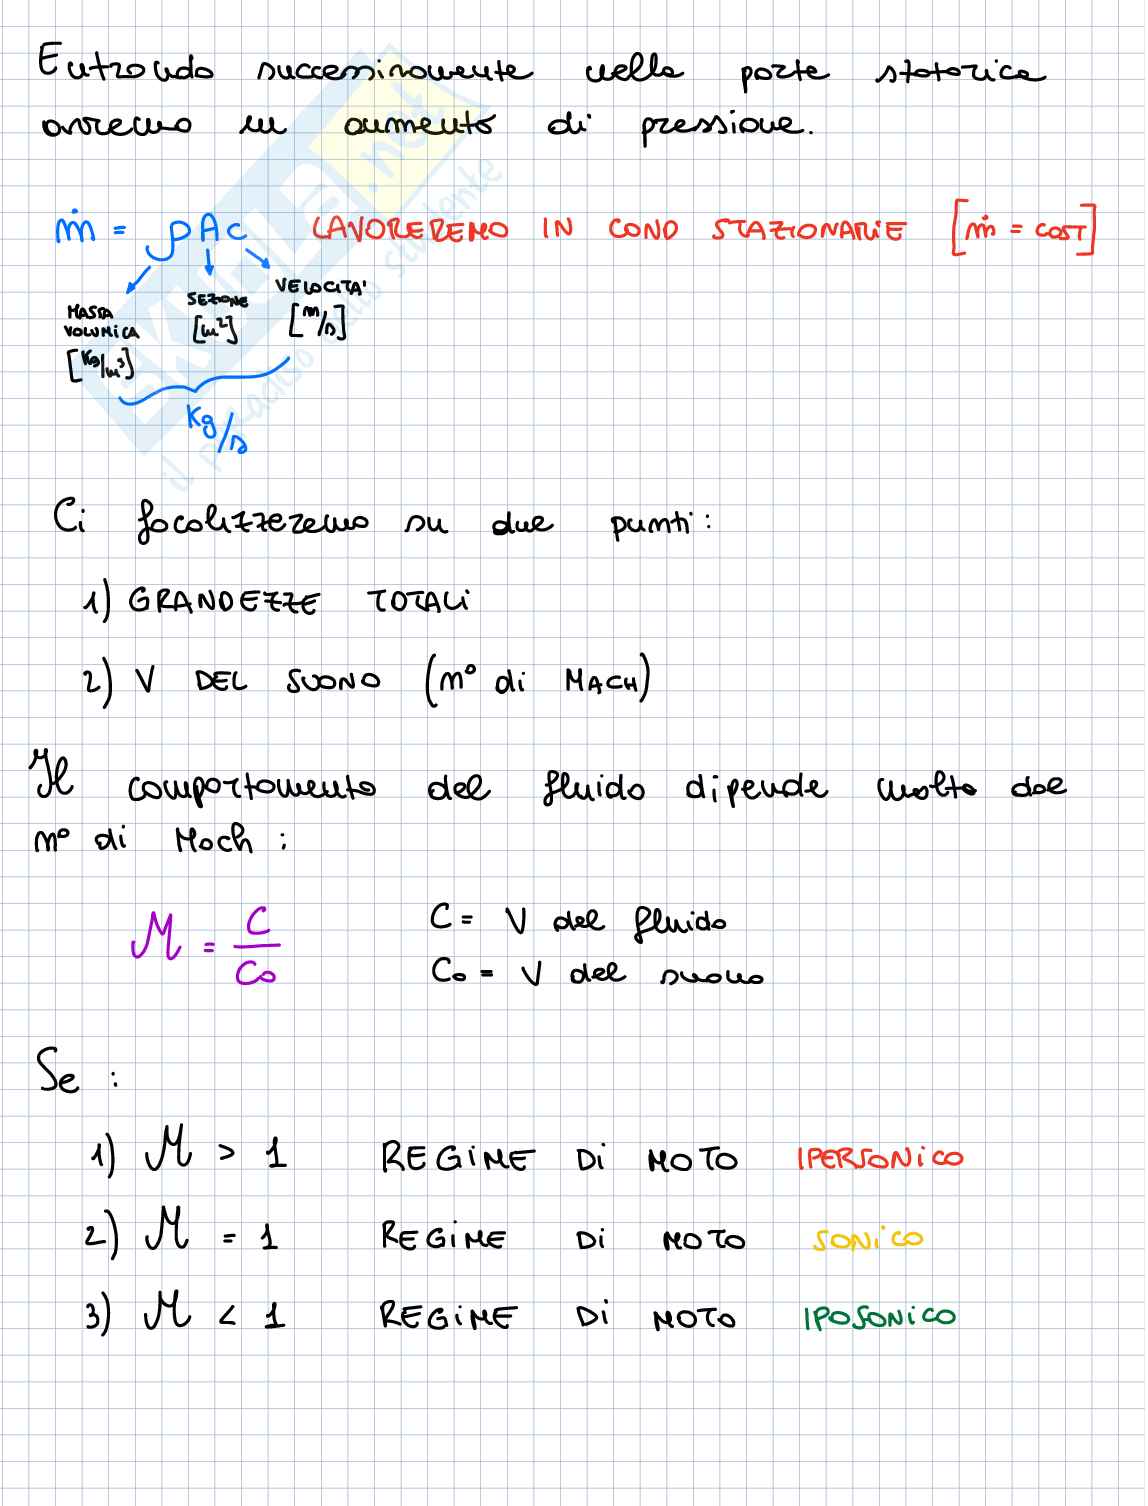 Entrando successivamente nella parte statorica
avremo un aumento di pressione.
ṁ = ρAc LAVOREREMO IN COND STAZIONARIE [ṁ = COST]
MASSA VOLUMICA [Kg/m³]
SEZIONE [m²]
VELOCITA' [m/s]
Kg/s
Ci focalizzeremo su due punti:
1) GRANDEZZE TOTALI
2) V DEL SUONO (n° di MACH)
Il comportamento del fluido dipende molto dal
n° di Mach:
M = C/Co
C = V del fluido
Co = V del suono
Se :
1) M > 1 REGIME DI MOTO IPERSONICO
2) M = 1 REGIME DI MOTO SONICO
3) M < 1 REGIME DI MOTO IPOSONICO
SKUOLA.net
il paradiso dello studente